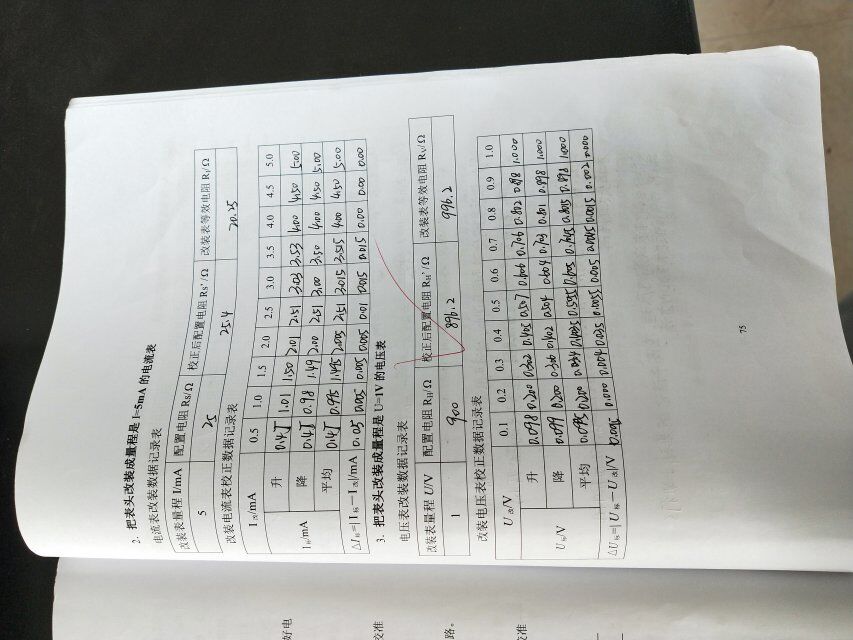 2. 把表头改装成量程是 I=5mA 的电流表
电流表改装数据记录表
改装表量程 I/mA 配置电阻 Rs/Ω 校正后配置电阻 Rs'/Ω 改装表等效电阻 R₁/Ω
5 25 25.4 20.25
改装电流表校正数据记录表
I改/mA 0.5 1.0 1.5 2.0 2.5 3.0 3.5 4.0 4.5 5.0
I标/mA
升 0.45 1.01 1.50 2.01 2.51 3.03 3.53 4.00 4.50 5.00
降 0.45 0.98 1.49 2.00 2.51 3.00 3.50 4.00 4.50 5.00
平均 0.45 0.995 1.495 2.005 2.51 3.015 3.515 4.00 4.50 5.00
△I标=|I标－I改|/mA 0.05 0.005 0.005 0.005 0.01 0.015 0.015 0.00 0.00 0.00
3. 把表头改装成量程是 U=1V 的电压表
电压表改装数据记录表
改装表量程 U/V 配置电阻 R_H/Ω 校正后配置电阻 R_H'/Ω 改装表等效电阻 Rv/Ω
1 900 896.2 996.2
改装电压表校正数据记录表
U改/V 0.1 0.2 0.3 0.4 0.5 0.6 0.7 0.8 0.9 1.0
U标/V
升 0.098 0.200 0.302 0.405 0.507 0.606 0.706 0.802 0.898 1.000
降 0.099 0.200 0.306 0.402 0.504 0.604 0.703 0.801 0.898 1.000
平均 0.200 0.605 0.8015 0.898 1.000
△U标=|U标－U改|/V 0.000 0.004 0.005 0.0015 0.002 0.000
75
好电
校准
路。
校准